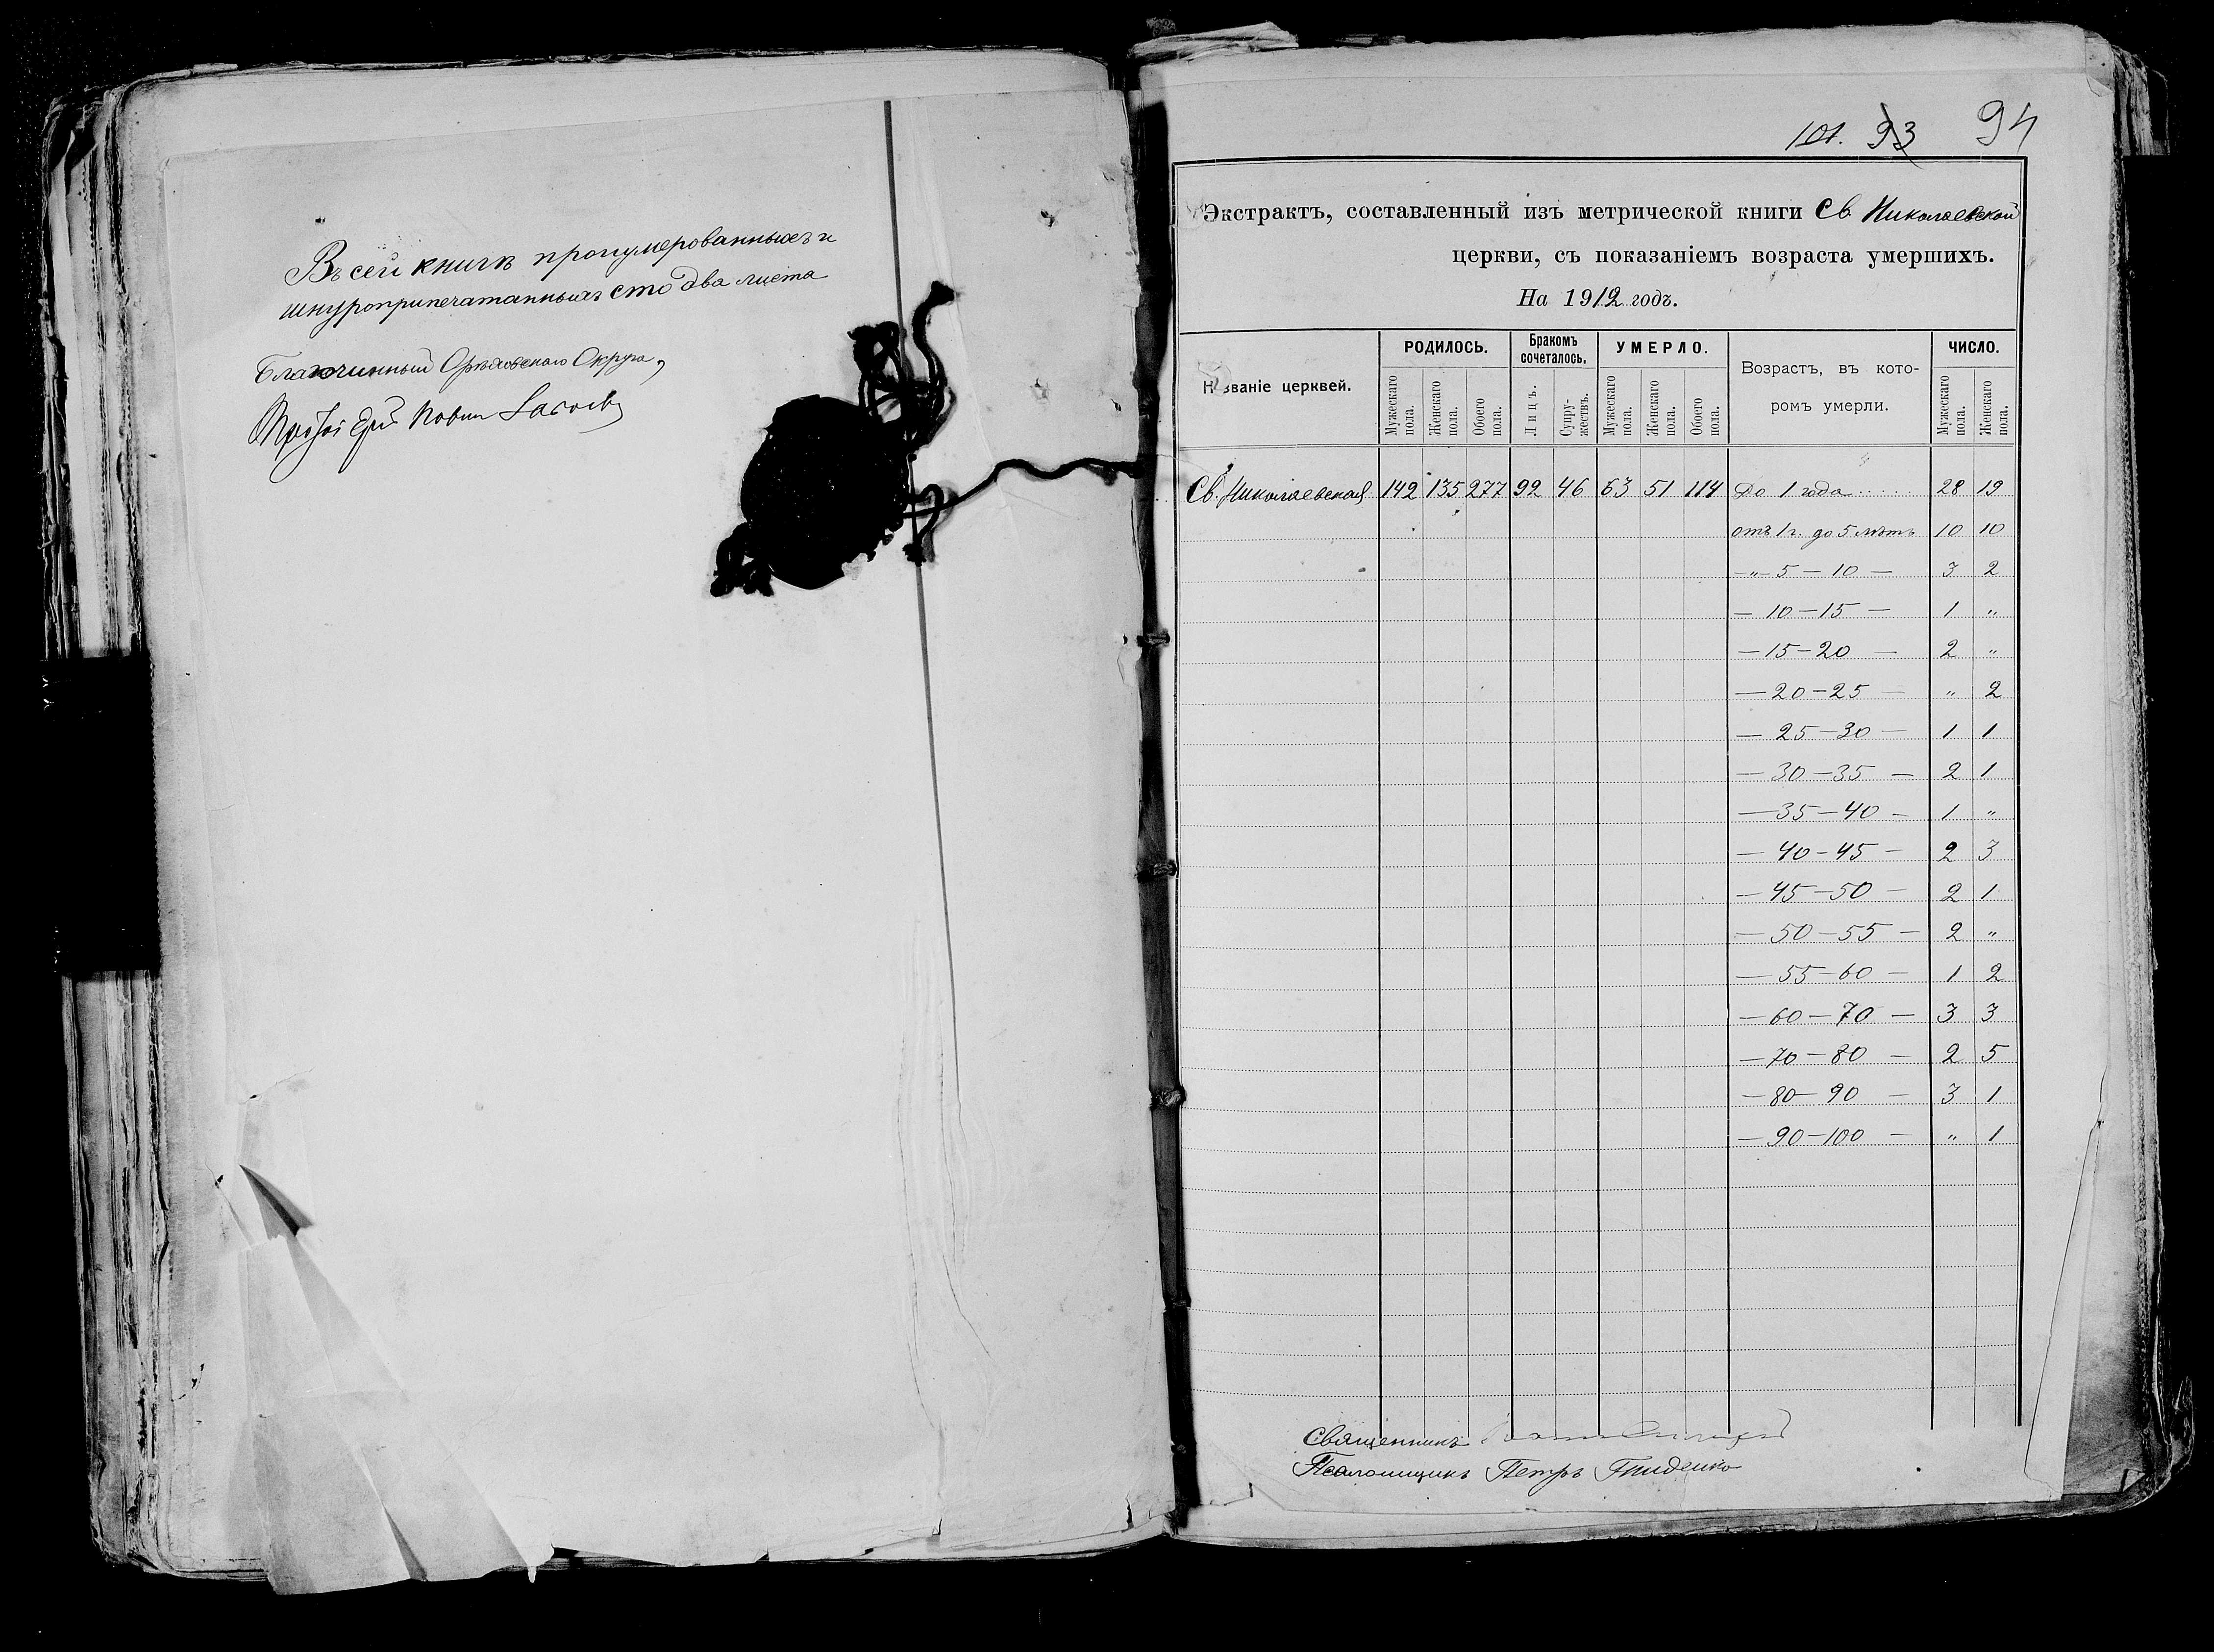 Въ сей книгѣ пронумерованныхъ и
шнуроприпечатанныхъ сто два листа
Благочинный Орѣховскаго Округа,
101. 93 94
Экстрактъ, составленный изъ метрической книги Св. Николаевской
церкви, съ показаніемъ возраста умершихъ.
На 1912 годъ.
Названіе церквей.
РОДИЛОСЬ.
Мужескаго пола.
Женскаго пола.
Обоего пола.
Бракомъ сочеталось.
Лицъ.
Супружествъ.
УМЕРЛО.
Мужескаго пола.
Женскаго пола.
Обоего пола.
Возрастъ, въ кото-
ромъ умерли.
ЧИСЛО.
Мужескаго пола.
Женскаго пола.
Св. Николаевская 142 135 277 92 46 63 51 114 До 1 года.... 28 19
отъ 1 г. до 5 лѣтъ 10 10
—„— 5 — 10 — 3 2
— 10 — 15 — 1 „
— 15 — 20 — 2 „
— 20 — 25 — „ 2
— 25 — 30 — 1 1
— 30 — 35 — 2 1
— 35 — 40 — 1 „
— 40 — 45 — 2 3
— 45 — 50 — 2 1
— 50 — 55 — 2 „
— 55 — 60 — 1 2
— 60 — 70 — 3 3
— 70 — 80 — 2 5
— 80 — 90 — 3 1
— 90 — 100 — „ 1
Священникъ
Псаломщикъ Петръ Гниденко